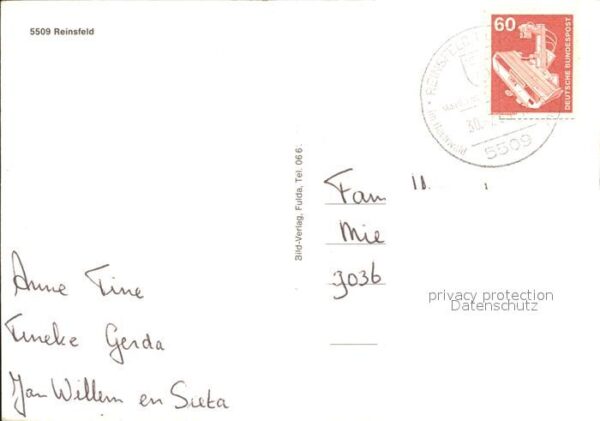 5509 Reinsfeld
60
DEUTSCHE BUNDESPOST
REINSFELD
30.
5509
Bild-Verlag, Fulda, Tel. 06 6
Fam
Mie
3036
privacy protection
Datenschutz
Anne Tine
Tineke Gerda
Jan Willem en Sieta